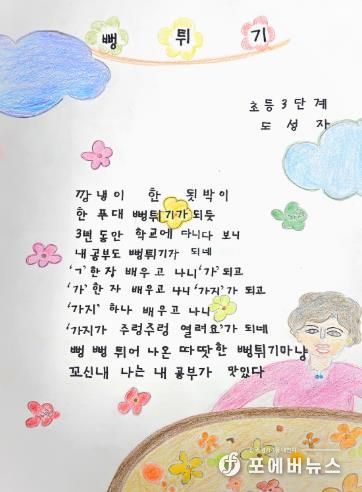 뻥 튀 기
초등 3 단계
도 성 자
깡냉이 한 됫박이
한 푸대 뻥튀기가 되듯
3년 동안 학교에 다니다 보니
내 공부도 뻥튀기가 되네
'ㄱ' 한 자 배우고 나니 '가' 되고
'가' 한 자 배우고 나니 '가지' 가 되고
'가지' 하나 배우고 나니
'가지가 주렁주렁 열려요' 가 되네
뻥 뻥 튀어 나온 따땃한 뻥튀기마냥
꼬신내 나는 내 공부가 맛있다
포에버뉴스